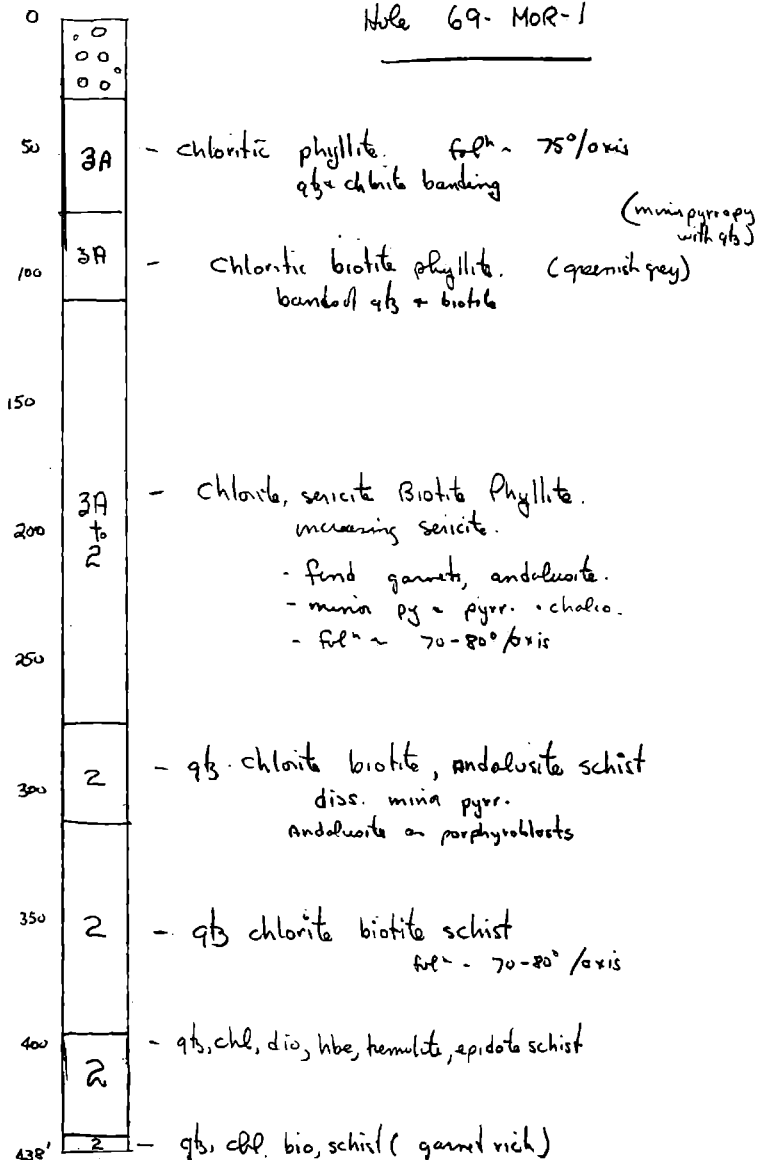 Hole 69-MOR-1
0
50
3A
- chloritic phyllite. folⁿ ~ 75°/axis
qtz + chlorite banding
(minor pyrr + py
with qtz)
100
3A
- Chloritic biotite phyllite. (greenish grey)
bands of qtz + biotite
150
200
3A
to
2
- Chlorite, sericite Biotite Phyllite.
increasing sericite.
- find garnets, andalusite.
- minor py + pyrr. + chalco.
- folⁿ ~ 70-80°/axis
250
300
2
- qtz. chlorite biotite, Andalusite schist
diss. minor pyrr.
Andalusite as porphyroblasts
350
2
- qtz chlorite biotite schist
folⁿ - 70-80°/axis
400
2
- qtz, chl, dio, hbe, tremolite, epidote schist
438'
2
- qtz, chl. bio, schist (garnet rich)